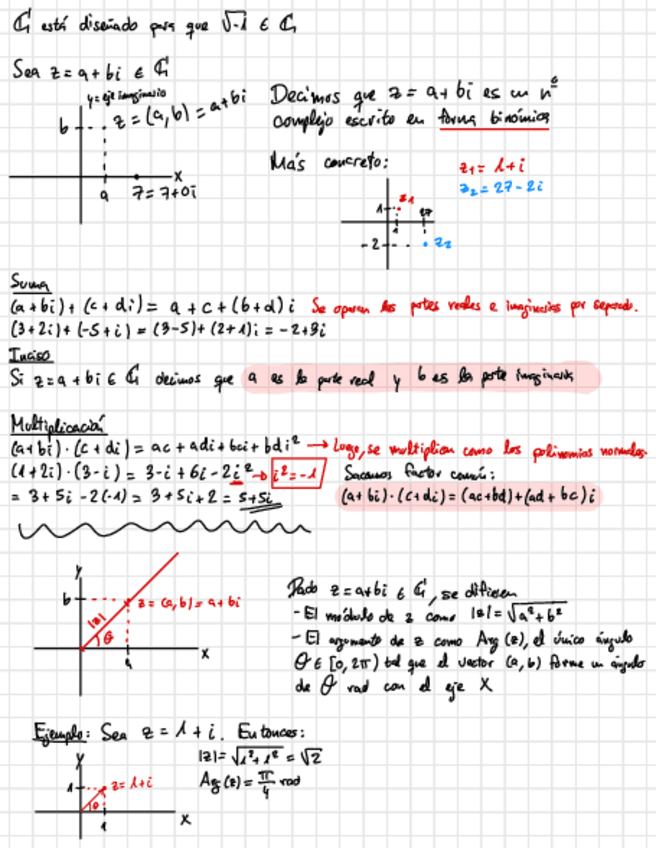 ℂ está diseñado para que √-1 ∈ ℂ
Sea z = a + bi ∈ ℂ
y = eje imaginario
b
z = (a, b) = a + bi
x
a
z = 7 + 0i
Decimos que z = a + bi es un nº
complejo escrito en forma binómica
Más concreto:
z₁ = 1 + i
z₂ = 27 - 2i
1
z₁
27
1
-2
z₂
Suma
(a + bi) + (c + di) = a + c + (b + d) i Se operan las partes reales e imaginarias por separado.
(3 + 2i) + (-5 + i) = (3 - 5) + (2 + 1) i = -2 + 3i
Inciso
Si z = a + bi ∈ ℂ decimos que a es la parte real y b es la parte imaginaria
Multiplicación
(a + bi) · (c + di) = ac + adi + bci + bdi² → Luego, se multiplican como los polinomios normales.
(1 + 2i) · (3 - i) = 3 - i + 6i - 2i² → i² = -1 Sacamos factor común:
= 3 + 5i - 2(-1) = 3 + 5i + 2 = 5 + 5i (a + bi) · (c + di) = (ac + bd) + (ad + bc) i
y
b
z = (a, b) = a + bi
|z|
θ
a
x
Dado z = a + bi ∈ ℂ, se definen
- El módulo de z como |z| = √a² + b²
- El argumento de z como Arg (z), el único ángulo
θ ∈ [0, 2π) tal que el vector (a, b) forme un ángulo
de θ rad con el eje X
Ejemplo: Sea z = 1 + i. Entonces:
|z| = √1² + 1² = √2
Arg (z) = π/4 rad
y
1
z = 1 + i
θ
1
x